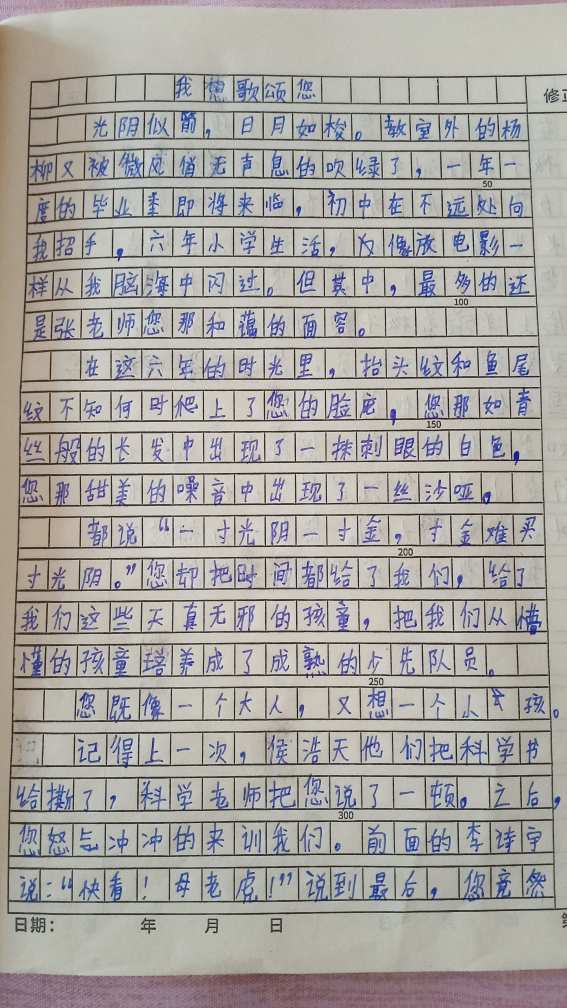 我想歌颂您
修正
光阴似箭,日月如梭。教室外的杨
柳又被微风悄无声息的吹绿了,一年一
50
度的毕业季即将来临,初中在不远处向
我招手,六年小学生活,仿像放电影一
样从我脑海中闪过。但其中,最多的还
100
是张老师您那和蔼的面容。
在这六年的时光里,抬头纹和鱼尾
纹不知何时爬上了您的脸庞,您那如青
150
丝般的长发中出现了一抹刺眼的白色,
您那甜美的嗓音中出现了一丝沙哑。
都说“一寸光阴一寸金,寸金难买
200
寸光阴。”您却把时间都给了我们,给了
我们这些天真无邪的孩童,把我们从懵
懂的孩童培养成了成熟的少先队员。
250
您既像一个大人,又想一个小女孩。
记得上一次,侯浩天他们把科学书
给撕了,科学老师把您说了一顿。之后,
300
您怒气冲冲的来训我们。前面的李诗宇
说:“快看!母老虎!”说到最后,您竟然
日期: 年 月 日